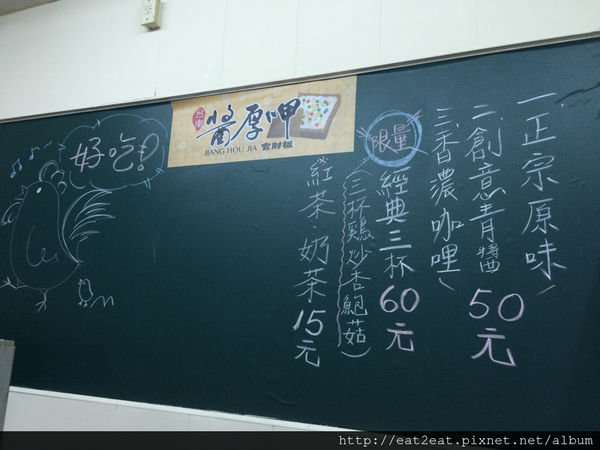 一、正宗原味
二、創意青醬 50元
三、香濃咖哩
限量
經典三杯 60元
(三杯鷄炒杏鮑菇)
紅茶.奶茶 15元
台南
醬厚呷
JIANG HOU JIA 官財板
好吃!
http://eat2eat.pixnet.net/album